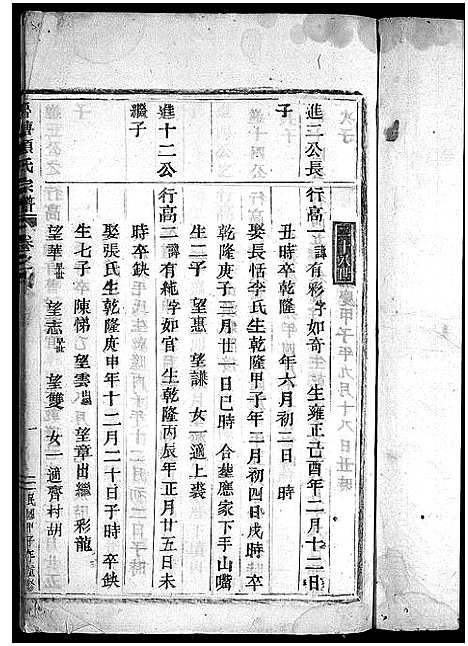 二十八世
進二公長子
行高一諱有彩字如奇 生雍正己酉年二月十二日
丑時卒乾隆 年六月初二日 時
娶長恬李氏生乾隆甲子年二月初四日戌時卒
乾隆庚子三月廿一日巳時 合墓應家下手山嘴
生二子 望惠 望謙 女一適上裘
進十二公繼子
行高二諱有純字如官 生乾隆丙辰年正月廿五日未
時卒缺
娶張氏生乾隆庚申年十二月二十日子時 卒缺
生七子 陳悌 望雲 望章出繼 彩龍
望華 望志 望雙 女一適齊村胡
項氏宗譜 卷之
一
民國甲子年重修